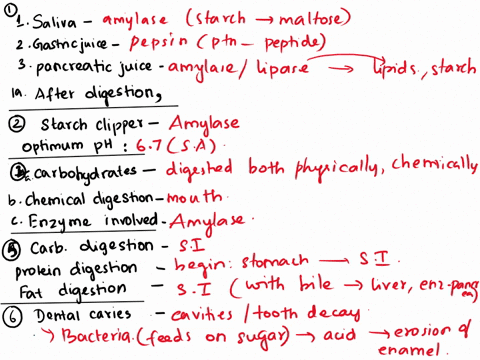 ①
1. Saliva - amylase (starch → maltose)
2. Gastric juice - pepsin (ptn - peptide)
3. pancreatic juice - amylase / lipase → lipids, starch
1a. After digestion,
② Starch clipper - Amylase
optimum pH : 6.7 (S.A)
Carbohydrates - digested both physically, chemically
b. Chemical digestion - mouth
c. Enzyme involved - Amylase.
⑤ Carb. digestion - S.I
protein digestion - begin: stomach → S.I.
Fat digestion - S.I (with bile → liver, enz-
⑥ Dental caries - cavities / tooth decay
↳ Bacteria (feeds on sugar) → acid → erosion of
enamel.